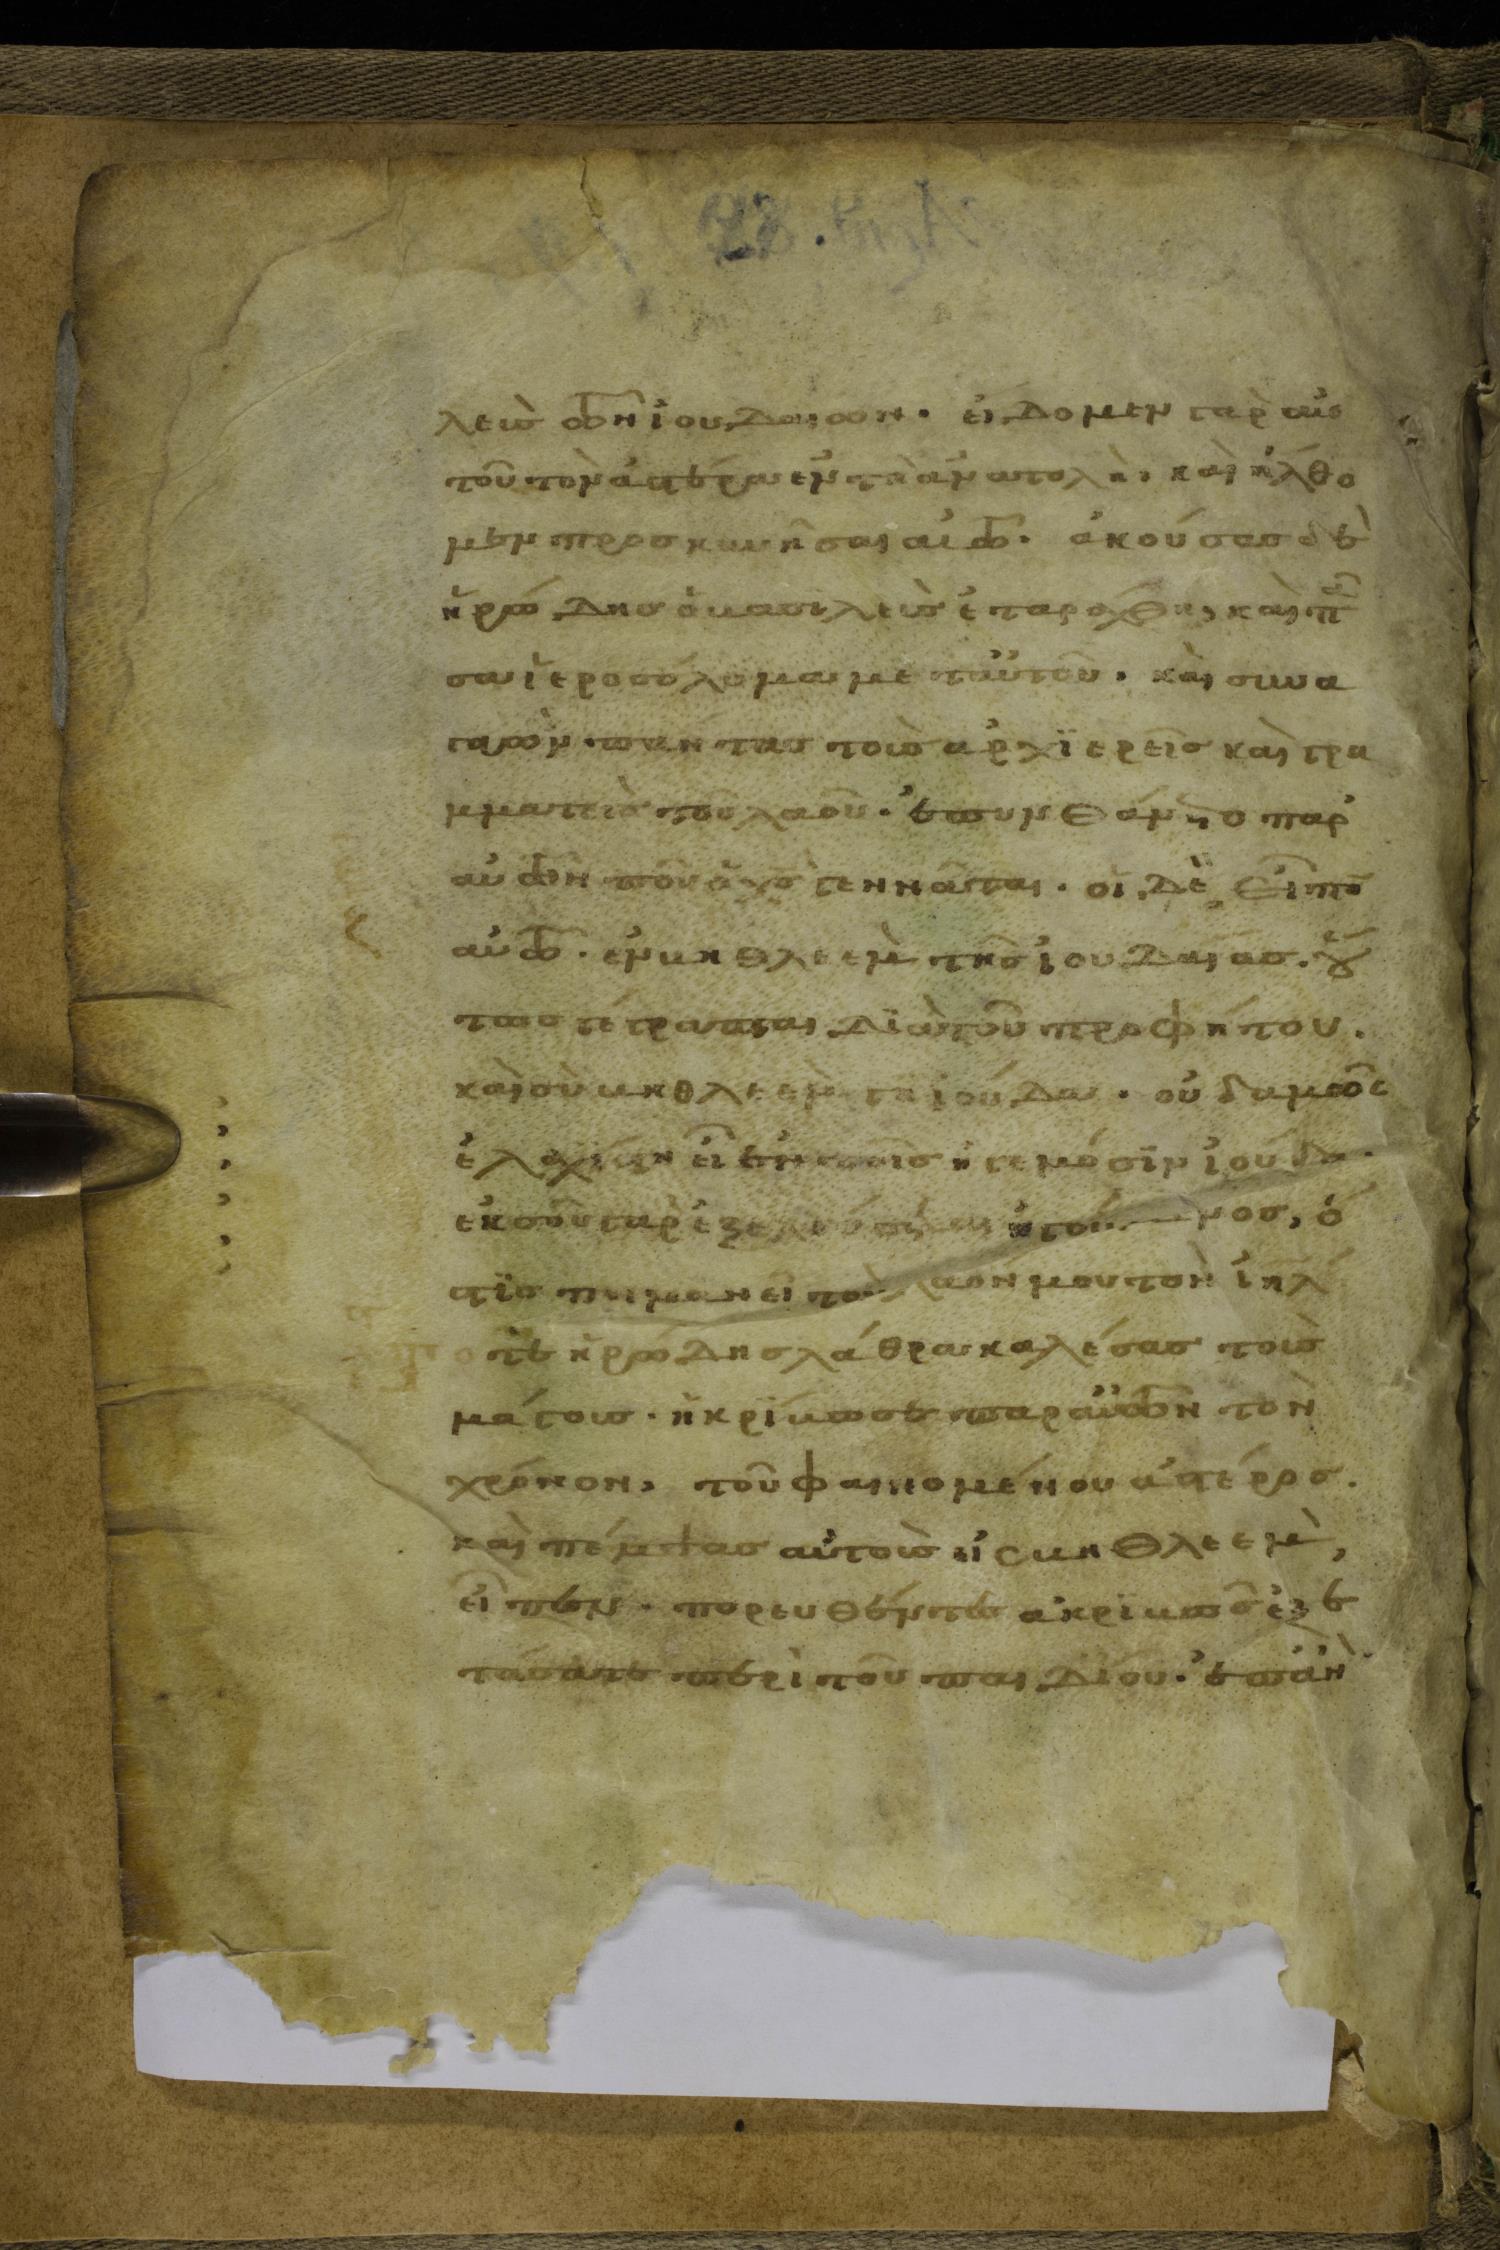 λεὺς τῶν ἰουδαίων. εἴδομεν γὰρ αὐ
τοῦ τὸν ἀστέρα ἐν τῇ ἀνατολῇ, καὶ ἤλθο
μεν προσκυνῆσαι αὐτῷ. ἀκούσας δὲ
ἡρώδης ὁ βασιλεὺς ἐταράχθη, καὶ πᾶ
σα ἱεροσόλυμα μετ αὐτοῦ. καὶ συνα
γαγὼν πάντας τοὺς ἀρχϊερεῖς καὶ γρα
μματεῖς τοῦ λαοῦ. ἐπυνθάνετο παρ
αὐτῶν ποῦ ὁ χσ γεννᾶται. οἱ δὲ εἶπο
αὐτῷ. ἐν βηθλεὲμ τῆς ἰουδαίας. οὕ
τως γέγραπται διὰ τοῦ προφήτου.
καὶ σὺ βηθλεὲμ γῆ ἰούδα. οὐδαμῶς
ἐλαχίστη εἶ ἐν τοῖς ἡγεμόσϊν ἰούδα.
ἐκ σοῦ γὰρ ἐξελεύσεται ἡγού μενος, ὅ
στϊς ποιμανεῖ τὸν λαόν μου τὸν ἰηλ
τότε ἡρώδης λάθρα καλέσας τοὺς
μάγους. ἠκρίβωσε παρ αὐτῶν τὸν
χρόνον, τοῦ φαινομένου ἀστέρος.
καὶ πέμψας αὐτοὺς εἰς βηθλεὲμ,
εἶπεν. πορευθέντες ἀκριβῶς ἐξε
τάσατε περὶ τοῦ παιδίου. ἐπὰν